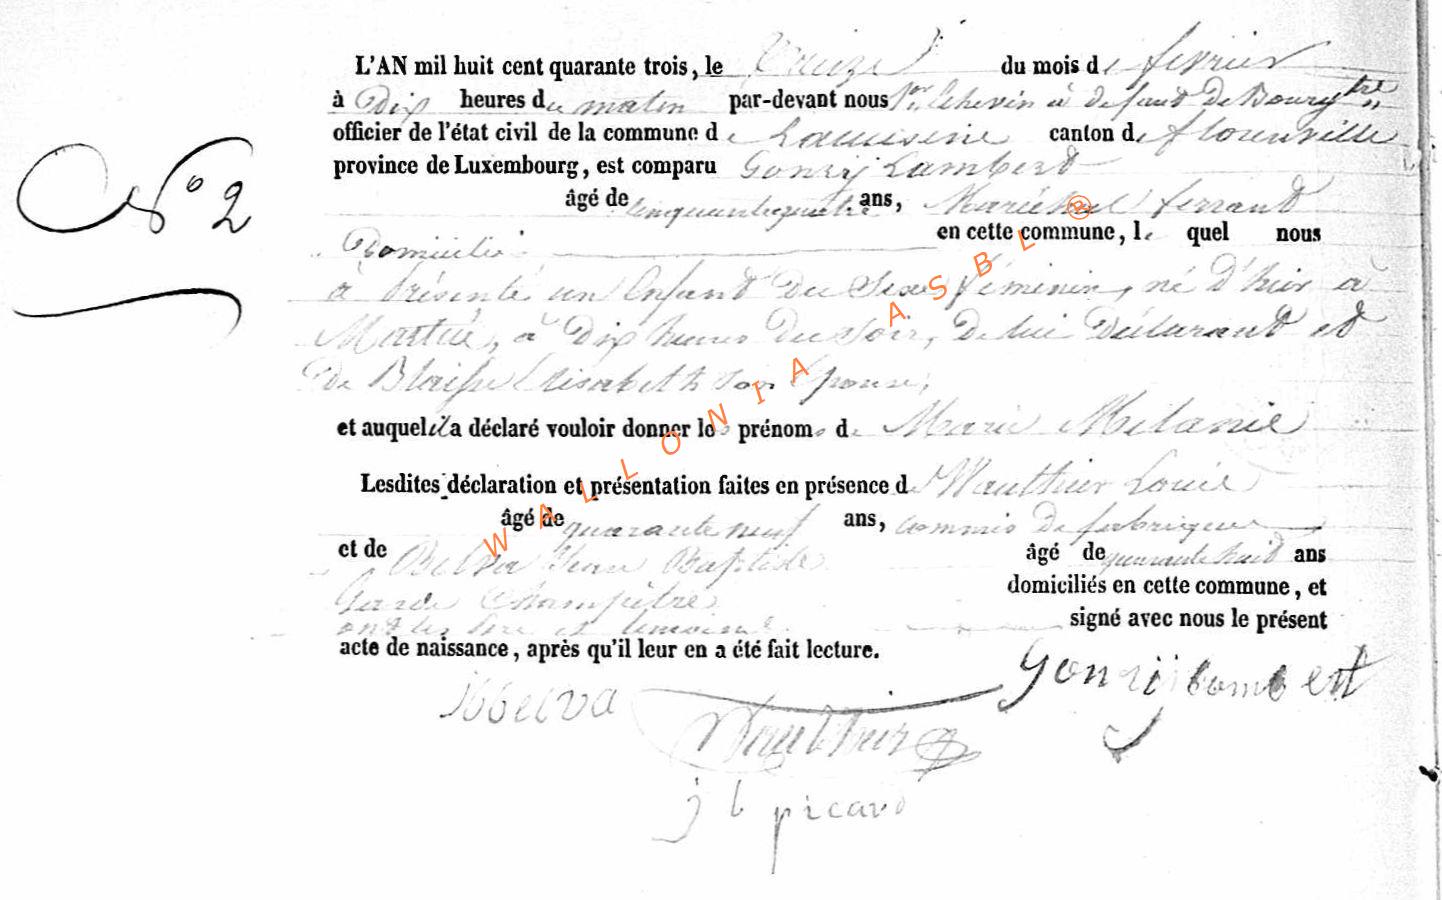 N° 2
L'AN mil huit cent quarante trois, le treize du mois de février
à Dix heures du matin par-devant nous 1er Echevin à defaut de Bourgtre
officier de l'état civil de la commune de Lacuisine canton de florenville
province de Luxembourg, est comparu Gonry Lambert
âgé de cinquantequatre ans, Maréchal ferrant
Domicilié en cette commune, le quel nous
à présenté un Enfant du Sexe féminin, né d'hier à
Martué, à Dix heures du Soir, De lui Déclarant et
De Blaise Elisabeth Son Epouse,
et auquel il a déclaré vouloir donner les prénoms de Marie Mélanie
Lesdites déclaration et présentation faites en présence de Wauthier Louis
âgé de quarante neuf ans, commis De fabrique
et de Belva Jean Baptiste âgé de quarante huit ans
Garde Champêtre domiciliés en cette commune, et
ont les père et témoins signé avec nous le présent
acte de naissance, après qu'il leur en a été fait lecture.
Gonry lambert
jbbelva
Wauthier
j b picard
WALLONIA ASBL ®